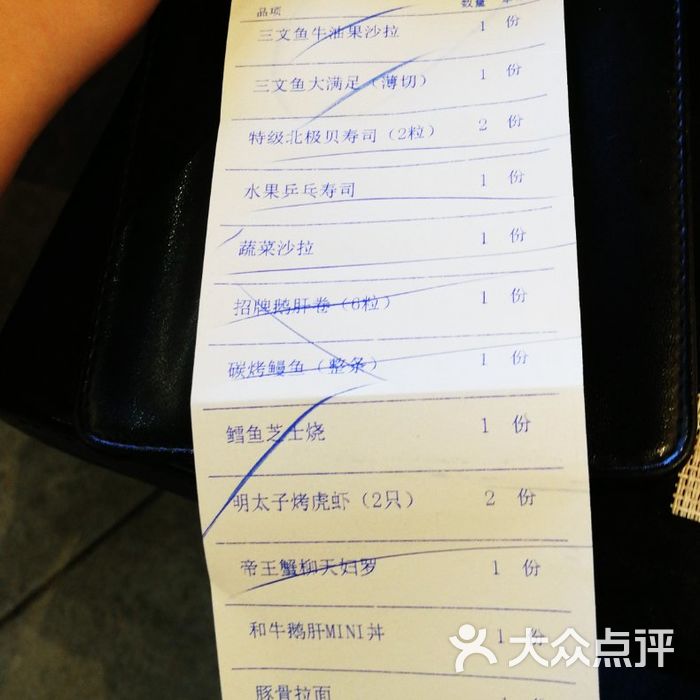 品项 数量
三文鱼牛油果沙拉 1 份
三文鱼大满足（薄切） 1 份
特级北极贝寿司（2粒） 2 份
水果乒乓寿司 1 份
蔬菜沙拉 1 份
招牌鹅肝卷（6粒） 1 份
碳烤鳗鱼（整条） 1 份
鳕鱼芝士烧 1 份
明太子烤虎虾（2只） 2 份
帝王蟹柳天妇罗 1 份
和牛鹅肝MINI丼 1 份
豚骨拉面
大众点评